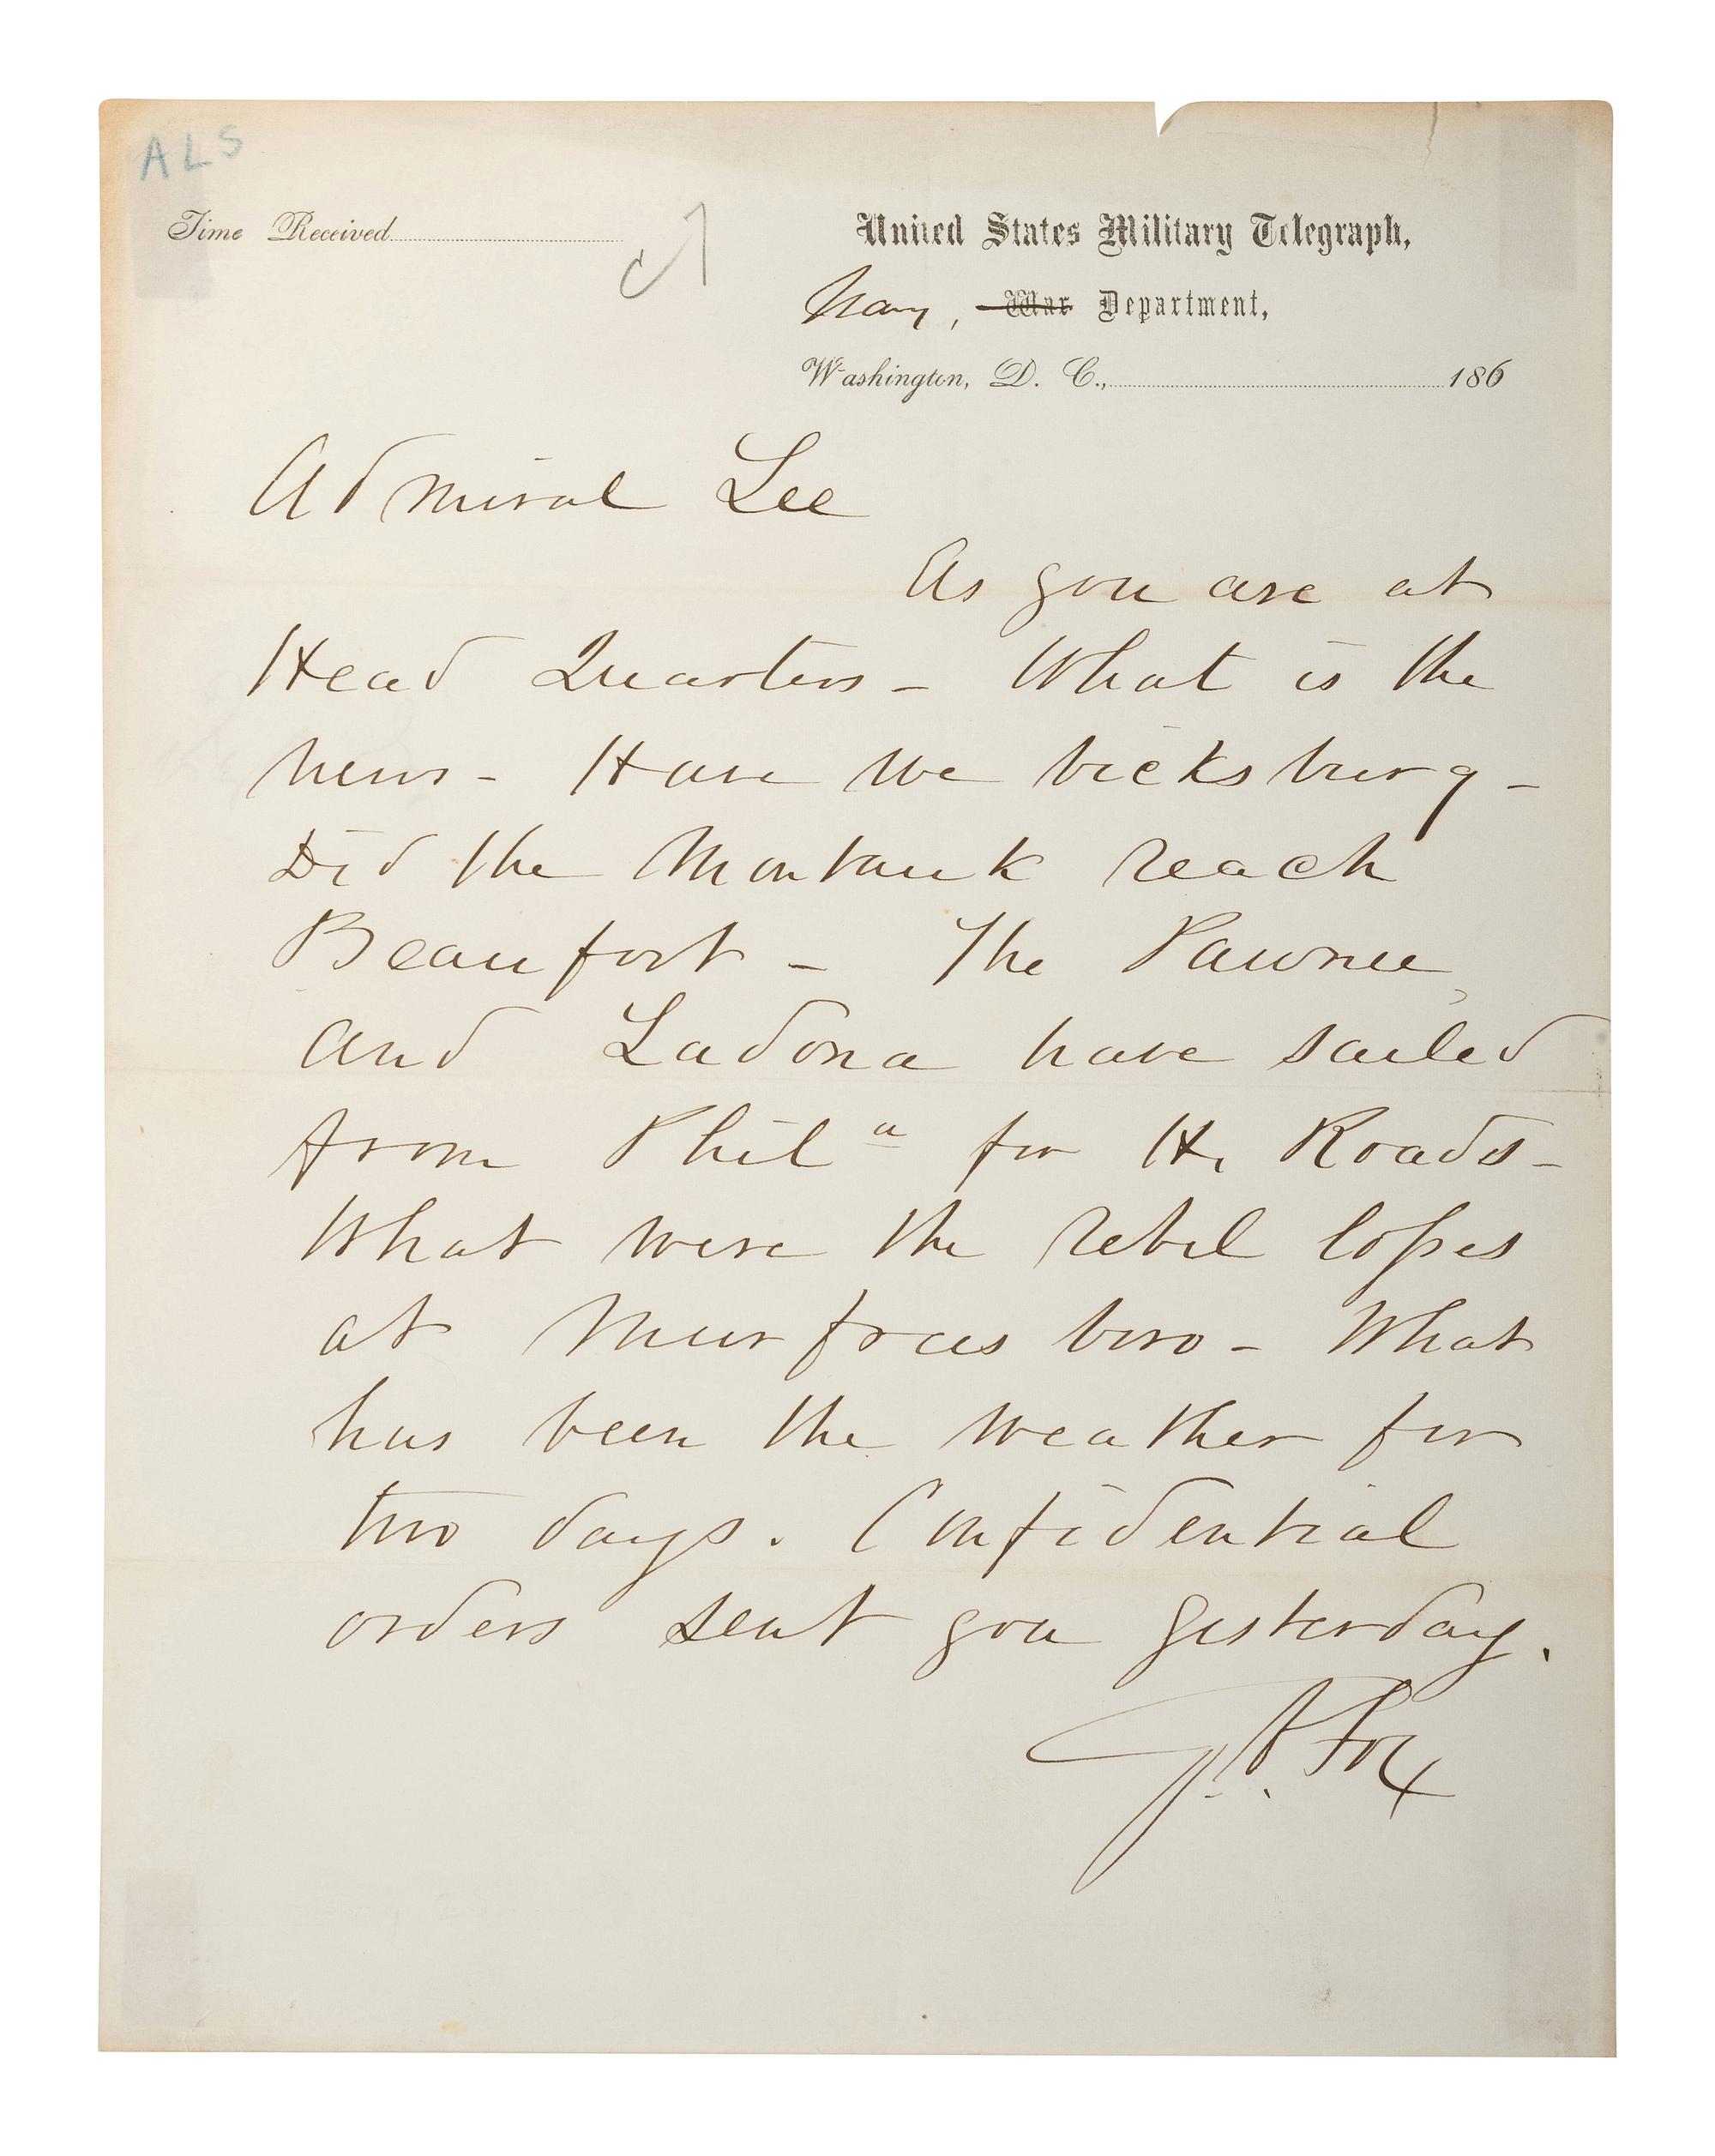 ALS
Time Received
United States Military Telegraph,
Navy, War Department,
Washington, D. C., 186
Admiral Lee
As you are at
Head Quarters - What is the
news - Have we vicksburg -
Did the Montauk reach
Beaufort - The Pawnee
and Ladona have sailed
from Phil a for H. Roads -
What were the rebel losses
at Murfrees boro - What
has been the weather for
two days. Confidential
orders sent you yesterday.
G. V. Fox